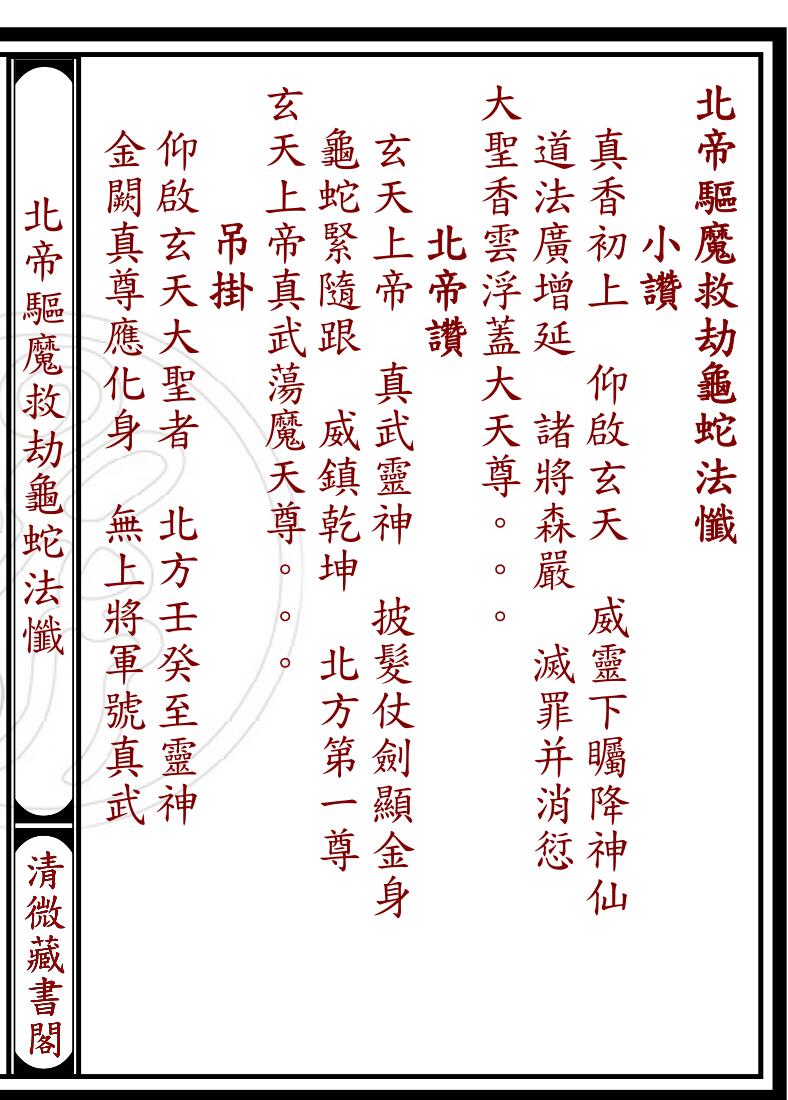 北帝驅魔救劫龜蛇法懺
小讚
真香初上　仰啟玄天　威靈下矚降神仙
道法廣增延　諸將森嚴　滅罪并消愆
大聖香雲浮蓋大天尊。。。
北帝讚
玄天上帝　真武靈神　披髮仗劍顯金身
龜蛇緊隨跟　威鎮乾坤　北方第一尊
玄天上帝真武蕩魔天尊。。。
吊掛
仰啟玄天大聖者　北方壬癸至靈神
金闕真尊應化身　無上將軍號真武
北帝驅魔救劫龜蛇法懺
清微藏書閣